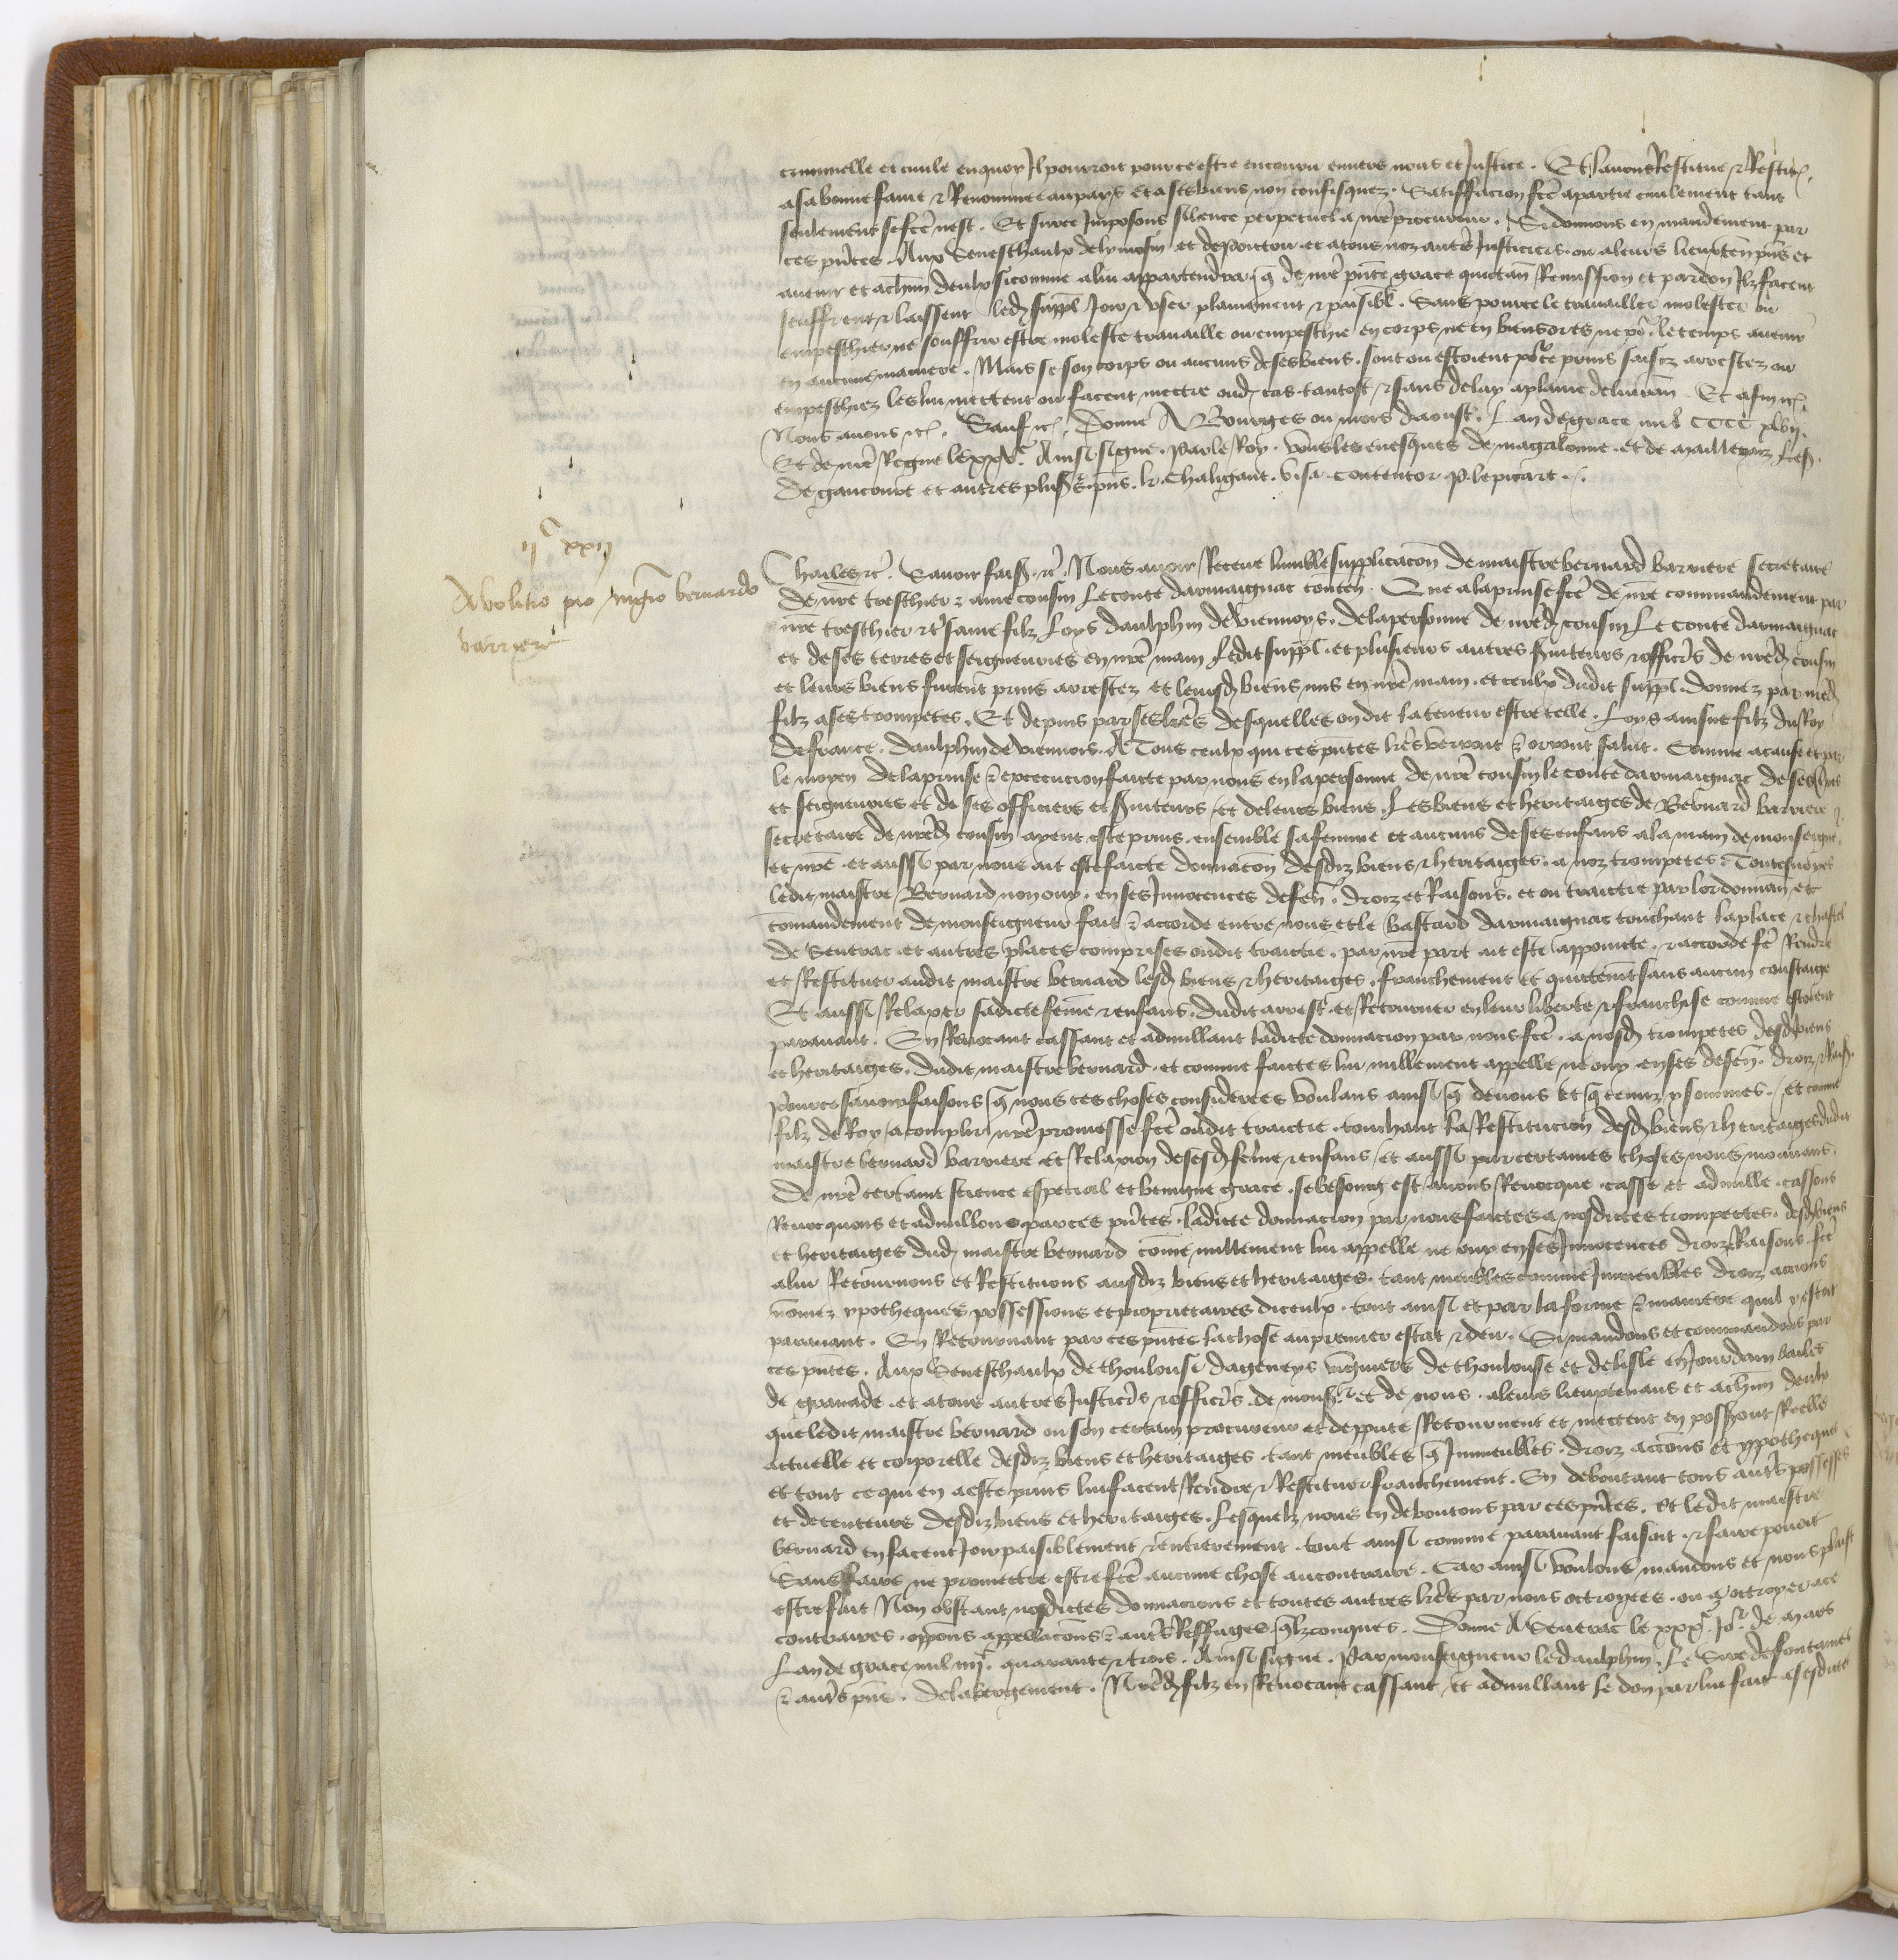 criminelle et civile en quoy Il pourroit pource estre encouru envers nous et Justice. Et lavons Restitue & Restit
a sa bonne fame & Renommee au pays et a ses biens non confisquez. Satisfacion fcē a partie civilement tant
seulement se fcē nest. Et surce Imposons silence perpetuel a nrē procureur. Si donnons en mandement par
ces pñtes. Aux Seneschaulx de lymosin et de poictou et a tous noz autrēs Justiciers ou a leurs lieuxten pñs et
avenir et a chūn deulx sicomme a lui appartendra q̄ de nrē pñte grace quictan̄ Remission et pardon Ilz facent
seuffrent & laissent led suppl Joir & user plainement & paisibl. Sans pource le travailler molester ou
empeschier ne souffrir estre moleste travaille ou empeschie en corps ne en biens ores ne po le temps avenir
en aucune maniere. Mais se son corps ou aucuns de ses biens sont ou estoient po ce prins saisiz arrestez ou
empeschiez les lui mettent ou facent mettre oud cas tantost & sans delay a plaine delivran̄. Et afin etc.
Nous avons etc. Sauf etc. Donne A Bourges ou mois daoust. Lan de grace mil CCCC xlvij.
Et de nrē Regne le xxve. Ainsi signe. Par le Roy. vous les evesques de magalonne et de maillezaiz. Les.
de gaucourt et autres plus pns. Ja. Chaligaut. visa. Contentor. P. le picart.
ijc xxij
Abolitio pro mgrō bernardo
barriere
Charles etc. Savoir fais etc. Nous avoir Receue lumble supplicacōn de maistre bernard barriere secretaire
de nrē treschier & ame cousin Le conte darmaignac conten̄. Que a la prinse fcē de nrē commandement par
nrē treschier & tsame filz Loys daulphin de viennoys. de la personne de nrēd cousin Le conte darmaignac
et de ses terres et seigneuries en nrē main Ledit suppl. et plusieurs autres sviteurs & officrs de nrēd cousin
et leurs biens furent prins arrestez et leursd biens mis en nrē main. et ceulx dudit suppl. donnez par nrēd
filz a ses trompetes. Et depuis par ses lrēs desquelles on dit la teneur estre telle. Loys aisne filz du Roy
de france. daulphin de viennois. A Tous ceulx qui ces pñtes lrēs verront & orront salut. Comme a cause et par
le moyen de la prinse & execucion faicte par nous en la personne de nrē cousin le conte darmaignac de ses terres
et seigneuries et de ses officiers et sviteurs et de leurs biens. Les biens et heritaiges de Bernard barriere
secretaire de nrēd cousin ayent este prins. ensemble sa femme et aucuns de ses enfans a la main de monseigneur
et nrē. et aussi par nous ait este faicte donnacōn desdiz biens & heritaiges. a noz trompetes. Toutesvoyes
ledit maistre Bernard non ouy. en ses Innocences defen̄. droiz et Raisons. et ou traictie par lordonnan̄ et
comandement de monseigneur fait & accorde entre nous et le bastard darmaignac touchant la place & chastel
de Severac et autres places comprises oudit traictie. par nrē part ait este appoincte & accorde fē Rendre
et Restituer audit maistre bernard lesd biens & heritaiges franchement et quictemēt sans aucun coustaige
Et aussi Relaxer sadicte fēme & enfans dudit arrest et Retourner en leur liberte & franchise comme estoient
paravant. En Revocant cassant et adnullant ladicte donnacion par nous fcē. a nosd trompetes desd biens
et heritaiges dudit maistre bernard. et comme faictes lui nullement appelle ne ouy en ses defen̄. droiz & Rais
Pource savoir faisons q̄ nous ces choses considerees voulans ainsi q̄ devons et q̄ tenuz y sommes. et comme
filz de Roy acomplir nrē promesse fcē oudit traictie touchant la Restitucion desd biens & heritaiges dudit
maistre bernard barriere et Relaxion de sesd fēme & enfans et aussi pour certaines choses nous mouvans.
De nrē certaine science especial et benigne grace. se besoing est avons Revocque casse et adnulle cassons
Revocquons et adnullons par ces pñtes. ladicte donnacion par nous faictes a nosdictes trompettes. desd biens
et heritaiges dud maistre bernard cōme nullement lui appelle ne ouy en ses Innocences droiz & Raisons fcē
a lui Retournons et Restituons ausdiz biens et heritaiges. tant meubles comme Inmeubles droiz actions
nōmez ypotheques possessions et proprietaires diceulx. tout ainsi et par la forme & maniere quil y estoit
paravant. En Retournant par ces pñtes la chose au premier estat & deu. Si mandons et commandons par
ces pñtes. Aux Seneschaulx de thoulouse dageneys viguiers de thoulouse et de lisle en Jourdain bailes
de granade. et a tous autres Justicrs & officrs de mons et de nous. a leurs lieuxtenans et a chūn deulx
que ledit maistre bernard ou son certain procureur et deppute Retournent et mettent en poss Reelle
actuelle et corporelle desdiz biens et heritaiges. tant meubles q̄ Inmeubles. droiz accōns et ypotheques
et tout ce qui en a este prins lui facent Rendre & Restituer franchement. En deboutant tous autrs possess
et detenteurs desdiz biens et heritaiges. Lesquelz nous en deboutons par ces pñtes. et ledit maistre
bernard en facent Joir paisiblement & entierement tout ainsi comme paravant faisoit & faire povoit
Sans faire ne promettre estre fcē aucune chose au contraire. Car ainsi voulons mandons et nous plaist
estre fait Non obstant nosdictes donnacions et toutes autres lrēs par nous octroyees. ou a octroyer a ce
contraires. oppōns appellacōns & autrs Reffuges qlzconques. Donne A Severac le Jo. de mars
Lan de grace mil iiijc. quarante & trois. Ainsi signe. Par monseigneur le daulphin. Le Sire de fontaines
& autrs pns. Delabergement. Nrēd filz en Revocant cassant et adnullant le don par lui fait a sesdictes